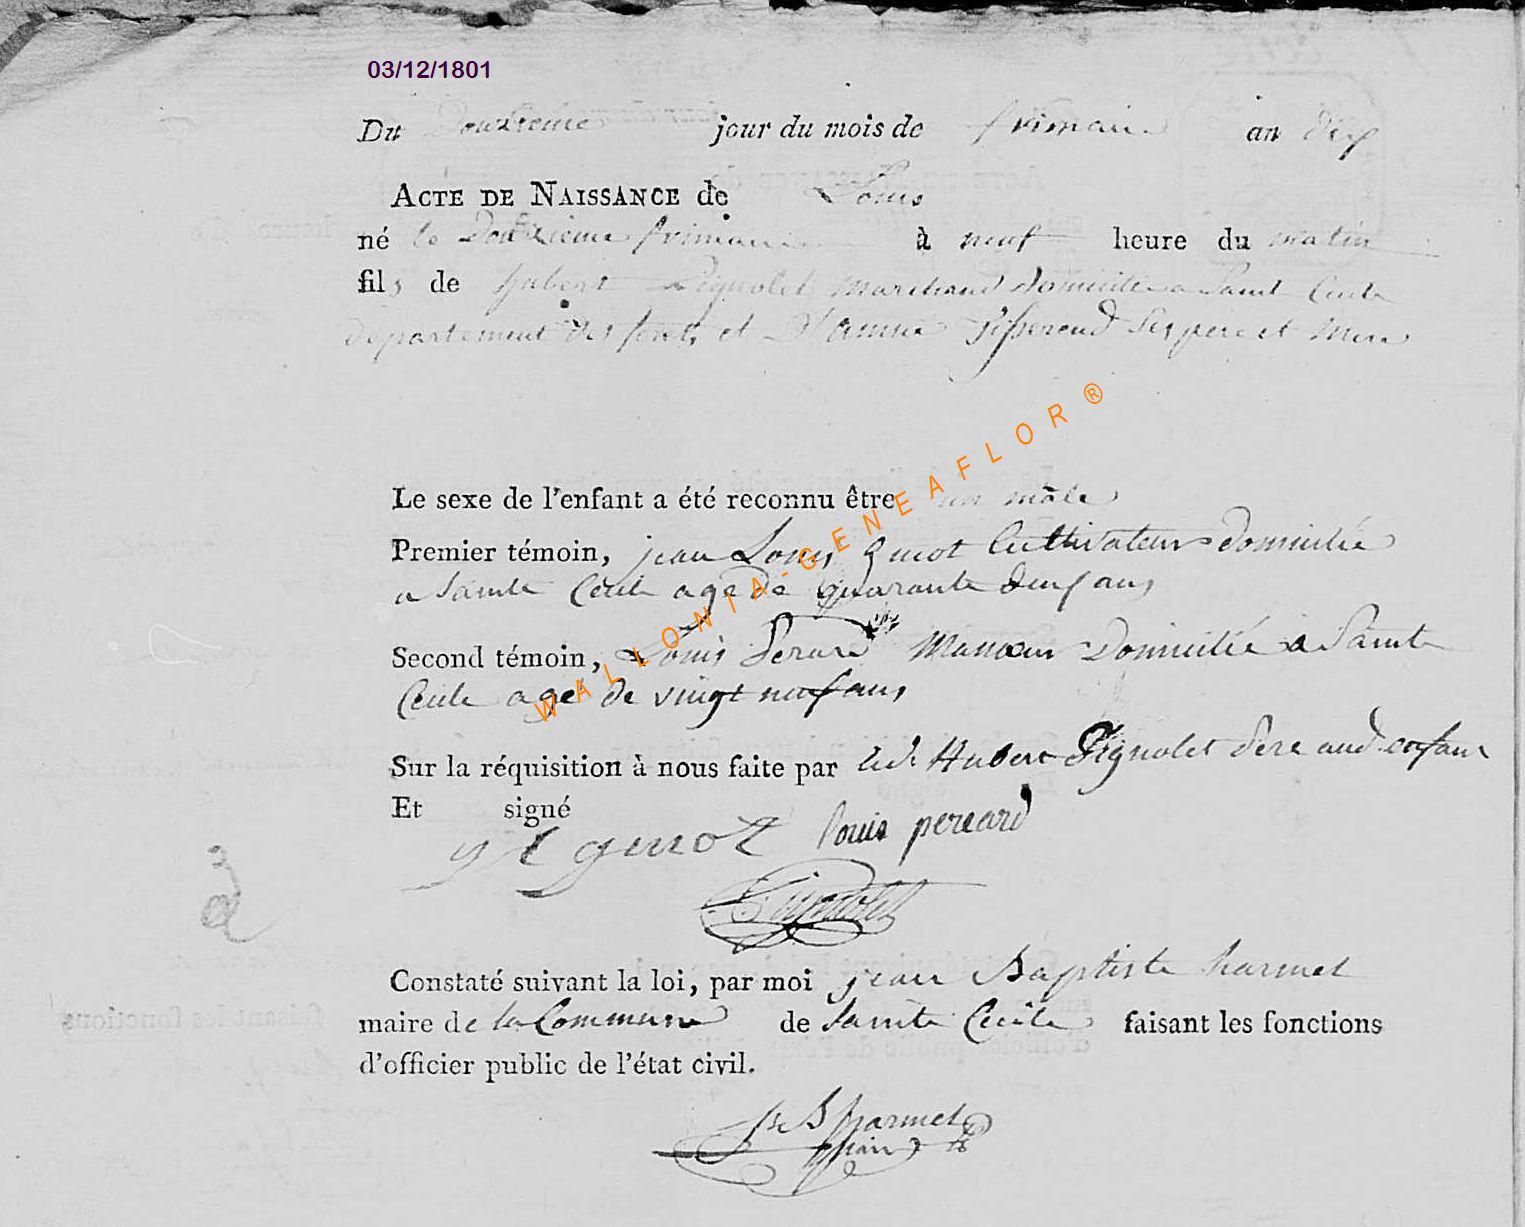 03/12/1801
Du Douzieme jour du mois de frimaire an dix
ACTE DE NAISSANCE de Louis
né le Douzieme frimaire à neuf heure du matin
fils de hubert Pignolet Marchand Domicilie a Saint Cecile
département des forets et D'annne Pisserend Ses pere et Mere
WALLONIA-GENEAFLOR®
Le sexe de l'enfant a été reconnu être un mâle
Premier témoin, jean Louis guiot Cultivateur Domicilié
a Sainte Cecile age De quarante deux ans
Second témoin, Louis Perard Domicilié a Sainte
Cecile age de vingt neuf ans
Sur la réquisition à nous faite par Hubert Pignolet Pere aud enfant
Et signé
guiot louis pereard
Pignolet
Constaté suivant la loi, par moi jean Baptiste harmel
maire de la Commune de Sainte Cecile faisant les fonctions
d'officier public de l'état civil.
J B harmel